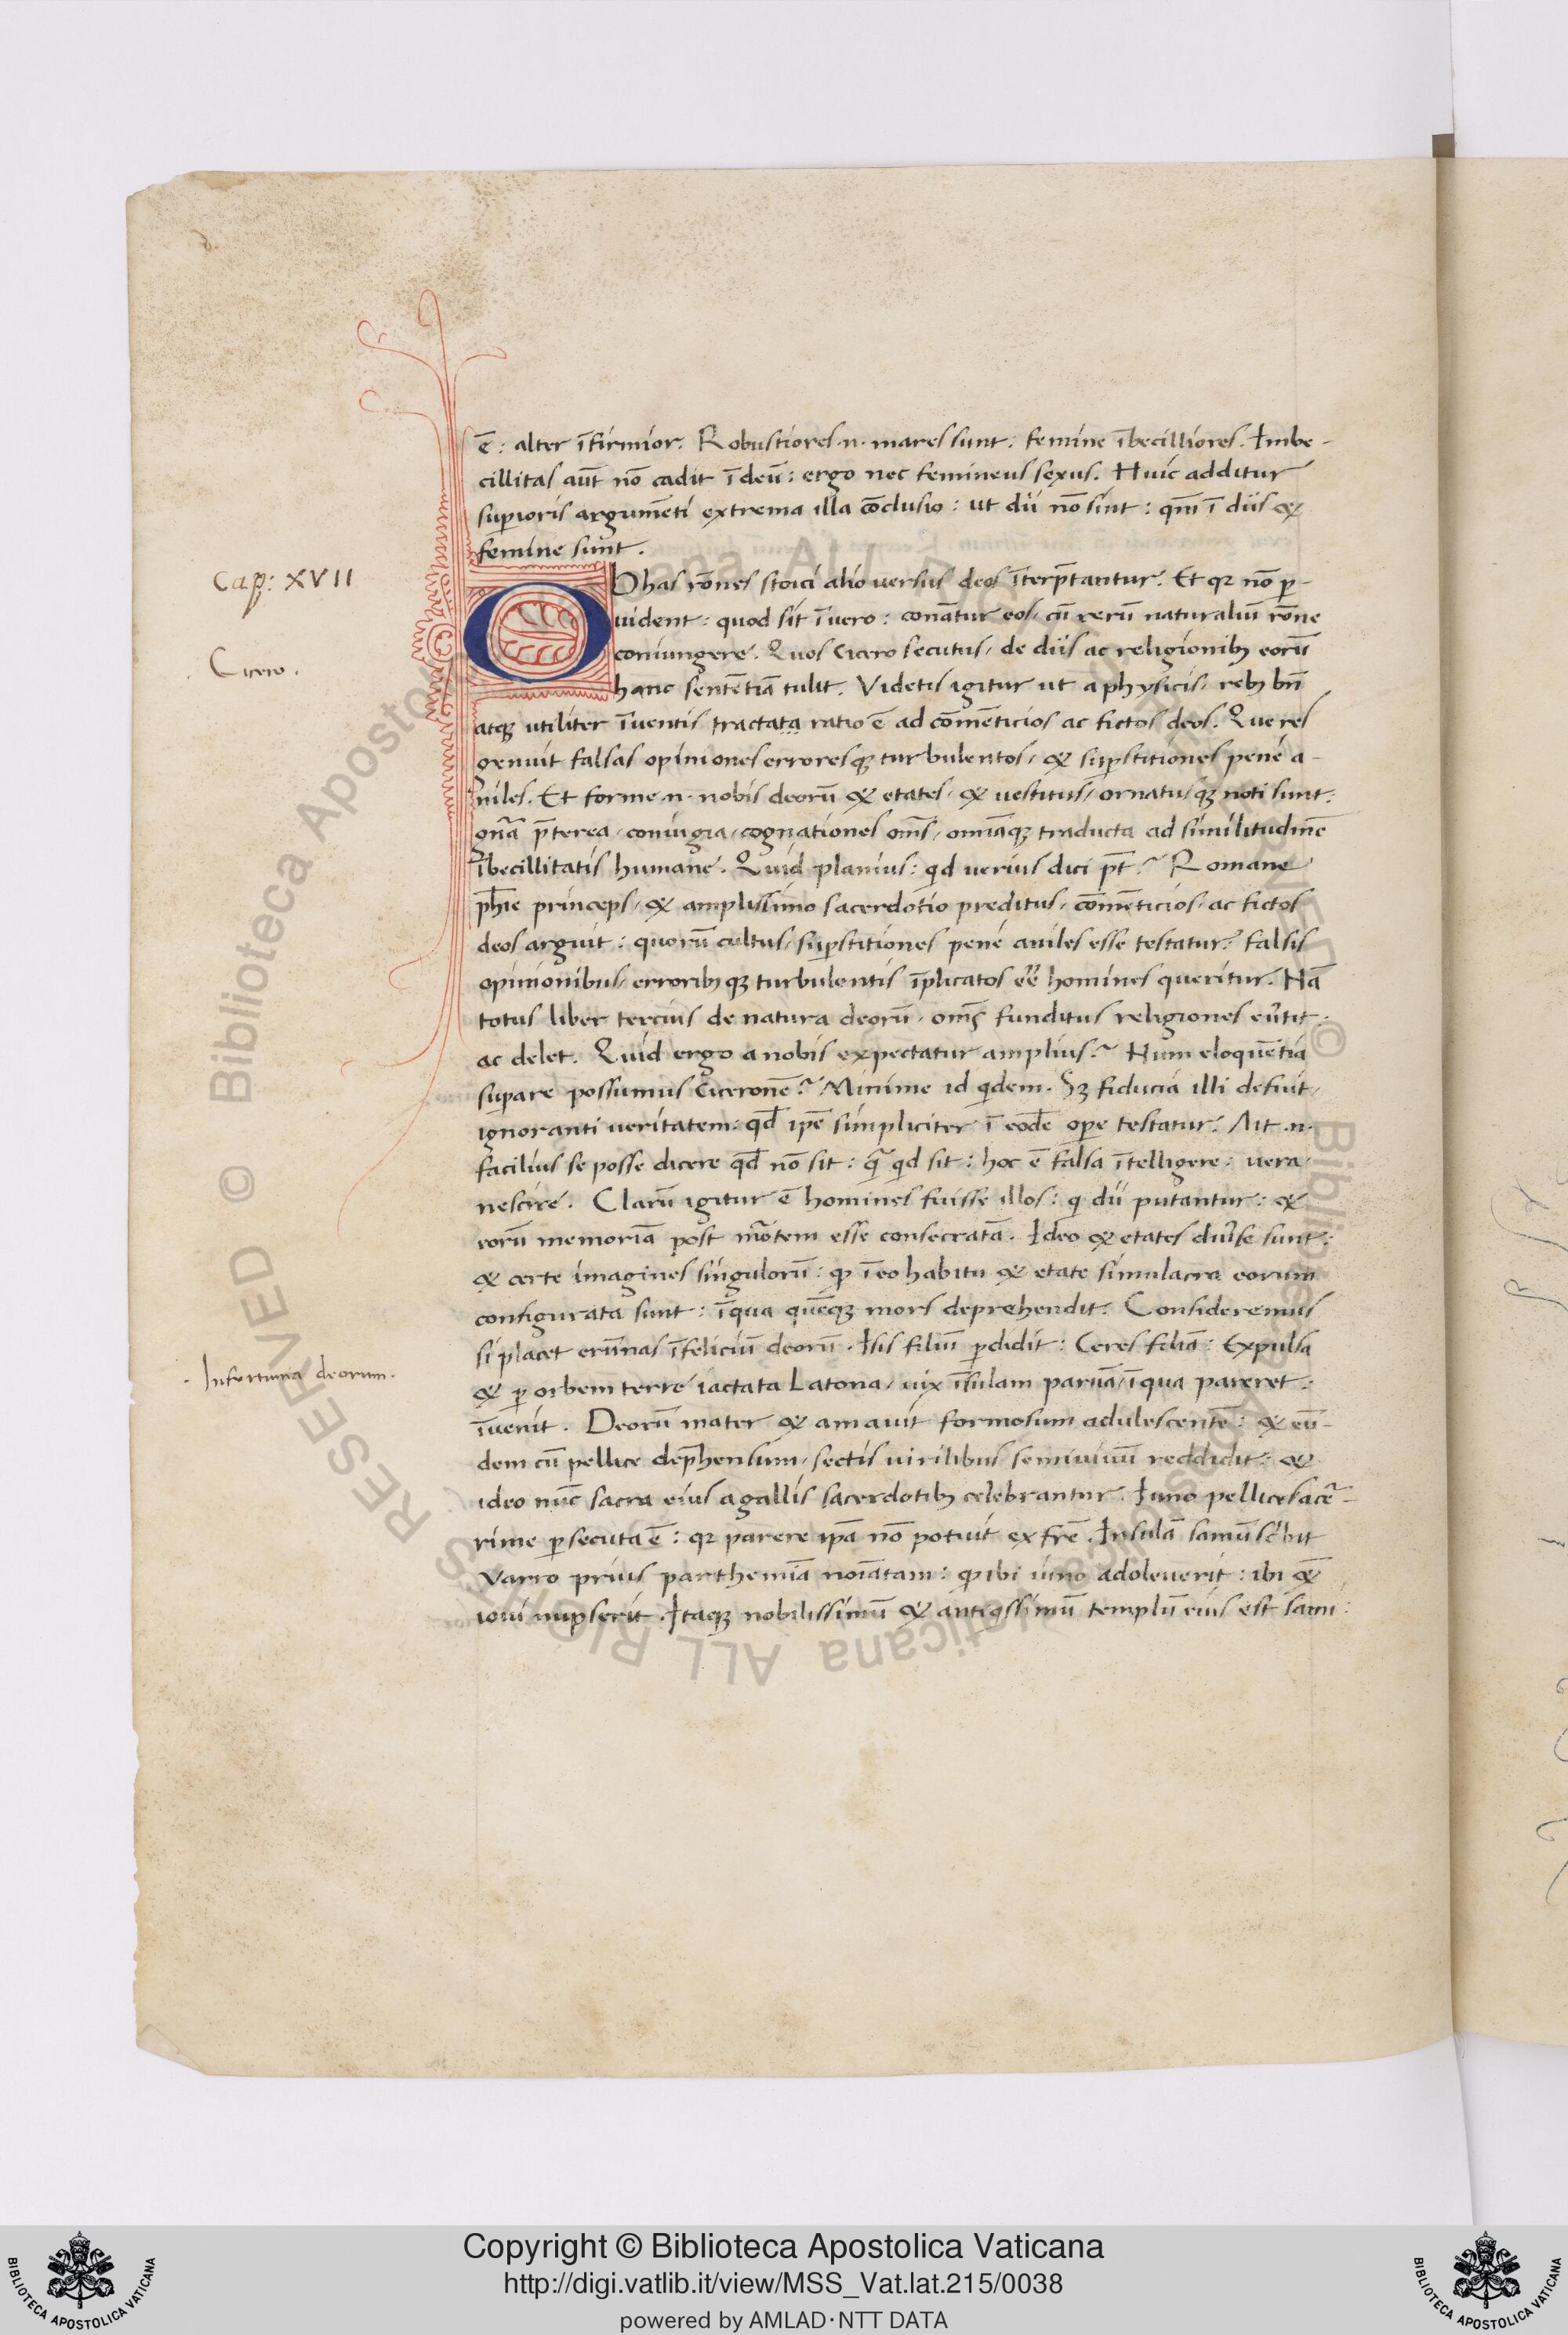 ē: alter īfirmior. Robustiores .n. mares sunt: femine ībecilliores. Imbe-
cillitas aūt nō cadit ī deū: ergo nec femineus sexus. Huic additur
supioris argumēti extrema illa cōclusio: ut dii nō sint: qm̄ ī diis &
femine sunt.
Cap: XVII
Ob has rōnes stoici alio versus deos īterp̄tantur. Et qz nō p-
uident: quod sit ī uero: conātur eos, cū rerū naturaliū rōne
coniungere. Quos Cicero secutus, de diis ac religionibꝫ eorū
Cicero.
hanc sentētiā tulit. Videtis igitur ut a physicis, rebꝫ bn̄
atqꝫ utiliter īuentis tractata ratio ē ad cōmēticios ac fictos deos. Que res
genuit falsas opiniones erroresqꝫ turbulentos, & supstitiones pene a-
niles. Et forme .n. nobis deorū & etates, & uestitus, ornatu, qꝫ noti sunt:
gn̄a p̄terea, coniugia, cognationes om̄s, omiāqꝫ traducta ad similitudinē
ībecillitatis humane. Quid planius: qd uerius dici pt̄? Romane
ph̄ie princeps, & amplissimo sacerdotio preditus, cōmēticios, ac fictos
deos arguit: quorū cultus, supstitiones pene aniles esse testatur? falsis
opinionibus, erroribꝫqꝫ turbulentis īplicatos ee̅ homines queritur. Nā
totus liber tercius de natura deorū, om̄s funditus religiones eūtit
ac delet. Quid ergo a nobis expectatur amplius? Num eloquētia
supare possumus Ciceronē? Minime id qdem. Sꝫ fiducia illi defuit,
ignoranti ueritatem: qd̄ ipē simpliciter ī eodē ope testatur. Ait .n.
facilius se posse dicere qd̄ nō sit: q̄ qd sit: hoc ē falsa ītelligere: uera
nescire. Clarū igitur ē homines fuisse illos: q dii putantur: &
eorū memoriā post mōtem esse consecratā. Ideo & etates diūse sunt:
& certe imagines singulorū: qp ī eo habitu & etate simulacra eorum
configurata sunt: ī qua quēqꝫ mors deprehendit. Consideremus
si placet erūnas īfeliciū deorū. Isis filiū pdidit: Ceres filiā: Expulsa
· Infortunia deorum.
& p orbem terre iactata Latona, uix īsulam paruā, ī qua pareret:
īuenit. Deorū mater & amauit formosum adulescentē: & eū-
dem cū pellice dep̄hensum, sectis uirilibus semiuiuū reddidit: &
ideo nūc sacra eius a gallis sacerdotibꝫ celebrantur. Iuno pellices acē-
rime psecuta ē: qz parere ipā nō potuit ex frē. Insulā samū scībit
Varro prius partheniā noīatam: qp ibi iuno adoleuerit: ibi q̄
ioui nupserit. Itaqꝫ nobilissimū & antiqssimū templū eius est sami:
Copyright © Biblioteca Apostolica Vaticana
http://digi.vatlib.it/view/MSS_Vat.lat.215/0038
powered by AMLAD·NTT DATA